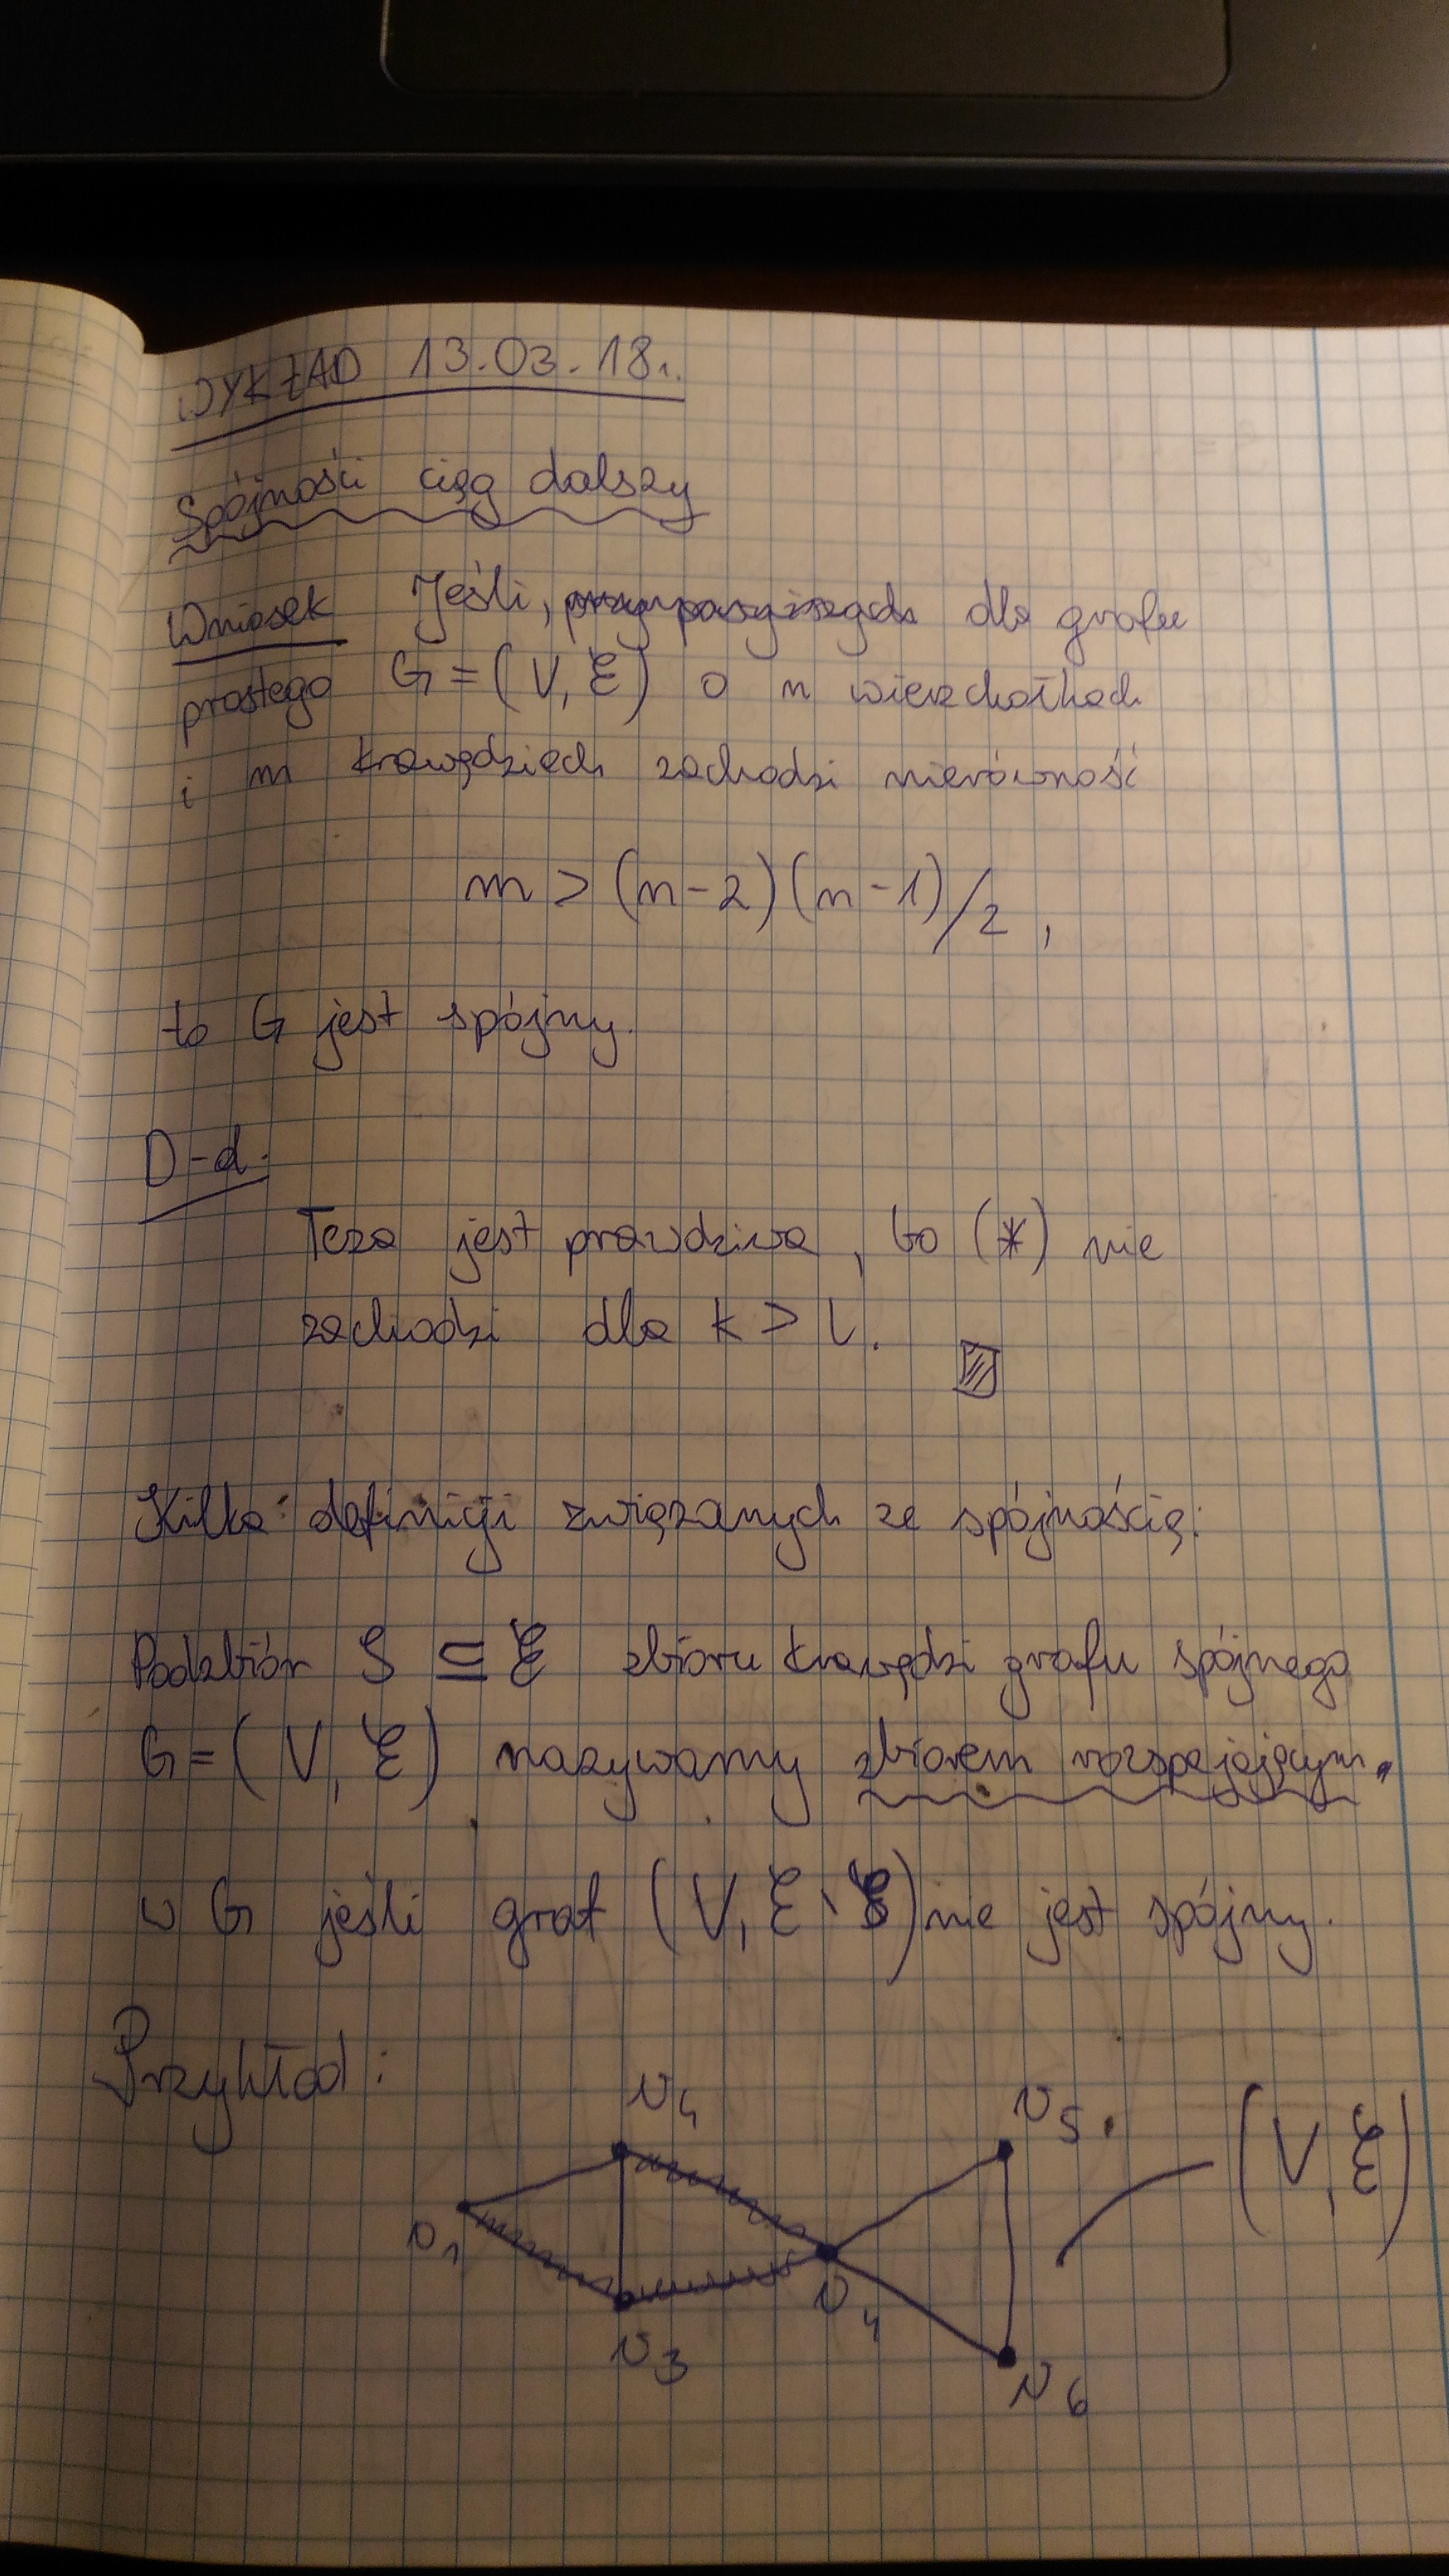 WYKŁAD 13.03.18r.
Spójności ciąg dalszy
Wniosek Jeśli, dla grafu
prostego G = (V, E) o n wierzchołkach
i m krawędziach zachodzi nierówność
m > (n-2)(n-1)/2 ,
to G jest spójny.
D-d.
Teza jest prawdziwa, bo (*) nie
zachodzi dla k > 1.
Kilka definicji związanych ze spójnością:
Podzbiór S ⊆ E zbioru krawędzi grafu spójnego
G = (V, E) nazywamy zbiorem rozspajającym
w G jeśli graf (V, E \ S) nie jest spójny.
Przykład:
v4 v5 (V, E)
v1 v4
v3 v6